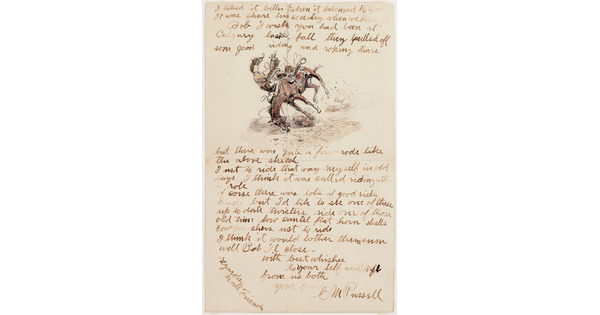 I liked it better when it belonged to God
It was shure his country when we
Bob I wish you had been at
Calgary last fall they pulled off
som good riding and roping thare
but there was quite a few rode like
the above sketch
I ust to ride that way myself in old
days I think it was called riding
role
of corse there was lots of good rids
but I'd like to see one of these
up to date twisters ride one of those
old time low cantel flat horn shells
punchers ust to ride
I think it would bother them som
well Bob I'l close
with best whishes
to your self and wife
from us both
your
C M Russell
regards
to all friends